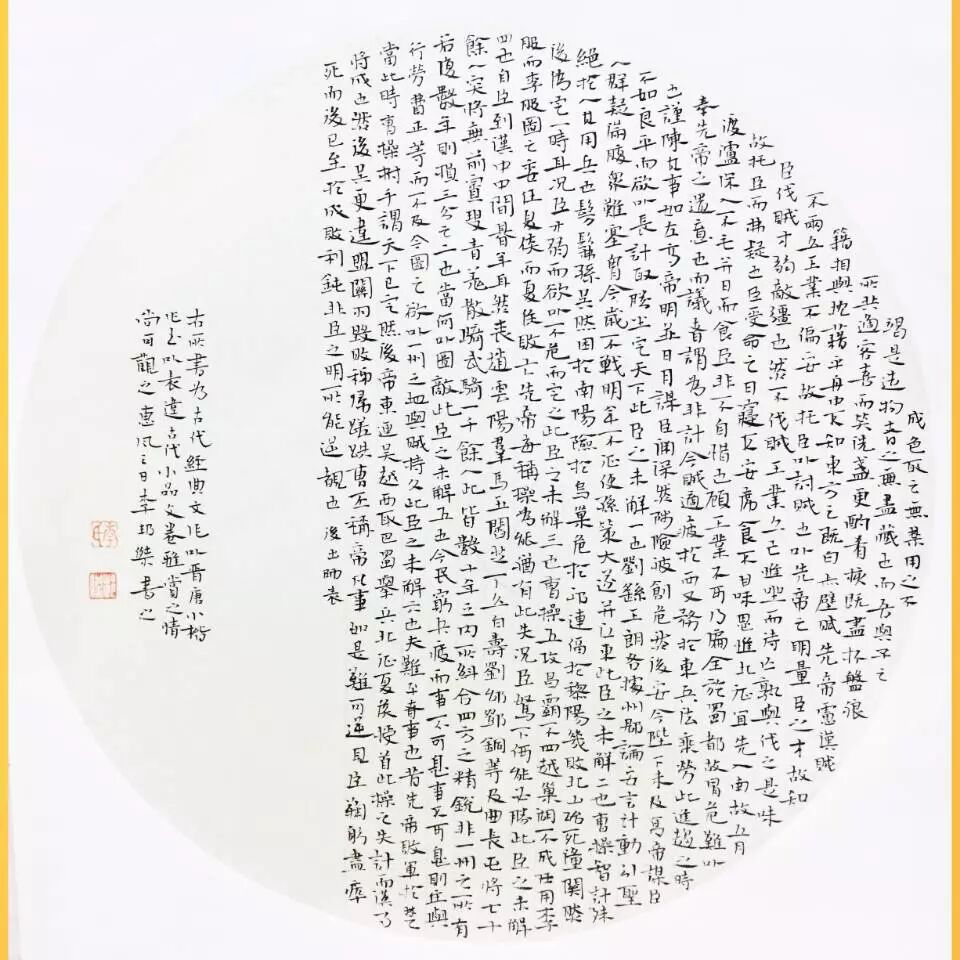 成色取之無禁用之不
竭是造物者之無盡藏也而吾與子之
所共適客喜而笑洗盞更酌肴核既盡杯盤狼
籍相與枕藉乎舟中不知東方之既白赤壁賦先帝慮漢賊
不兩立王業不偏安故托臣以討賊也以先帝之明量臣之才故知
臣伐賊才弱敵彊也然不伐賊王業久亡惟坐而待亡孰與伐之是味
故托臣而弗疑也臣受命之日寢不安席食不甘味思進北征宜先入南故五月
渡瀘深入不毛并日而食臣非不自惜也顧王業不可乃偏全於蜀都故冒危難以
奉先帝之遺意也而議者謂為非計今賊適疲於西又務於東兵法乘勞此進趨之時
也謹陳其事如左高帝明並日月謀臣淵深然涉險被創危然後安今陛下未及高帝謀臣
不如良平而欲以長計取勝坐定天下此臣之未解一也劉繇王朗各據州郡論安言計動引聖
人群疑滿腹眾難塞胸今歲不戰明年不征使孫策大遂并江東此臣之未解二也曹操智計殊
絕於人其用兵也髣髴孫吳然困於南陽險於烏巢危於祁連偪於黎陽幾敗北山殆死潼關然
後偽定一時耳況臣才弱而欲以不危而定之此臣之未解三也曹操五攻昌霸不四越巢湖不成任用李
服而李服圖之委任夏侯而夏侯敗亡先帝每稱操為能猶有此失況臣駑下何能必勝此臣之未解
四也自臣到漢中中間朞年耳然喪趙雲陽羣馬玉閻芝丁立白壽劉郃鄧銅等及曲長屯將七十
餘人突將無前賨叟青羌散騎武騎一千餘人此皆數十年之內所糾合四方之精銳非一州之所有
若復數年則損三分之二也當何以圖敵此臣之未解五也今民窮兵疲而事不可息事不可息則住與
行勞費正等而不及今圖之欲以一州之地與賊持久此臣之未解六也夫難平者事也昔先帝敗軍於楚
當此時曹操拊手謂天下已定然後帝東連吳越西取巴蜀舉兵北征夏侯授首此操之失計而漢事
將成也然後吳更違盟關羽毀敗秭歸蹉跌曹丕稱帝凡事如是難可逆見臣鞠躬盡瘁
死而後已至於成敗利鈍非臣之明所能逆覩也 後出師表
右所書為古代經典文作以晉唐小楷
以表達古代小品文卷雅賞之情
尚可觀之惠風之日李邦傑書之